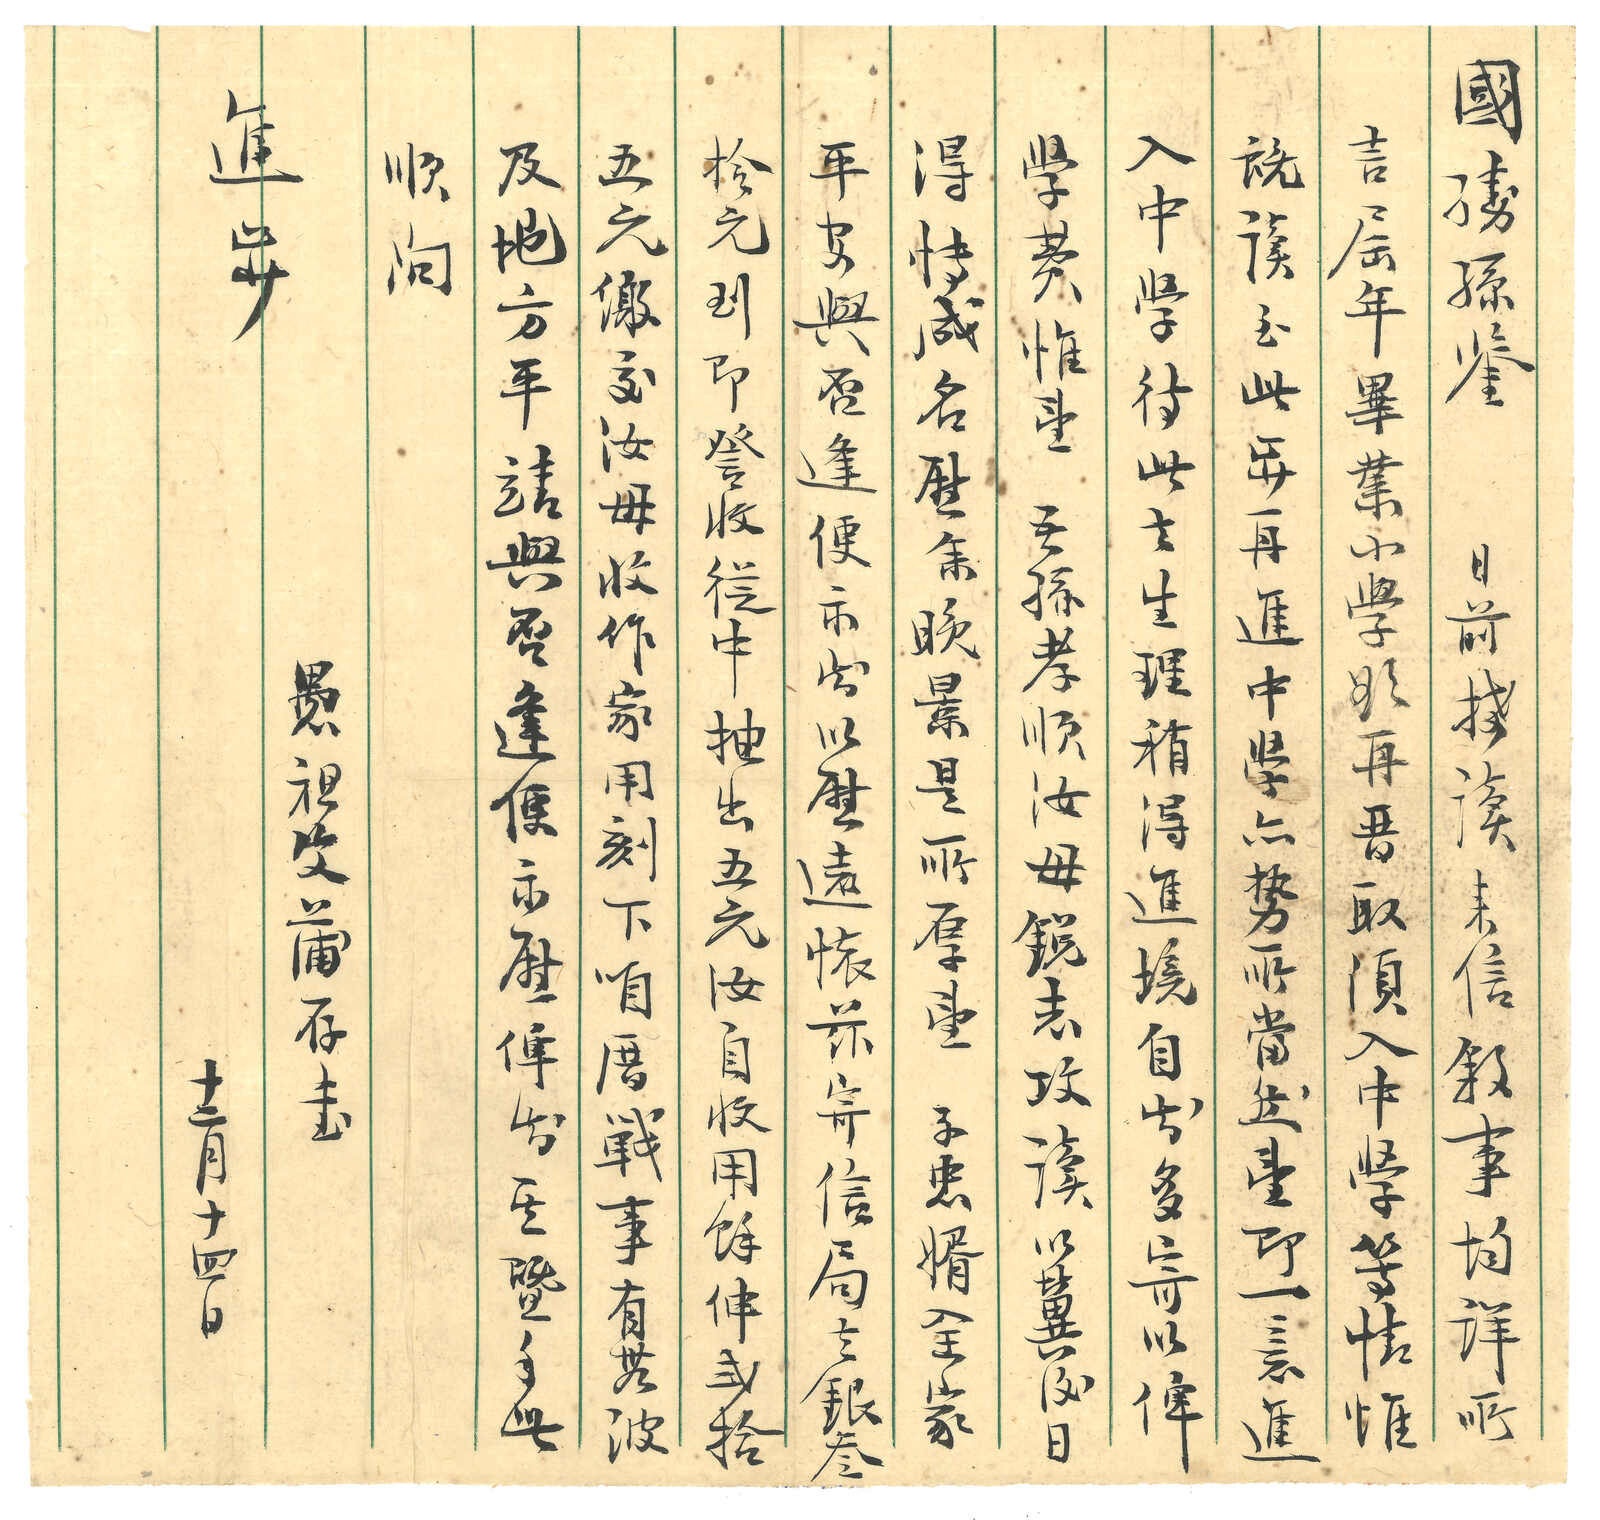 國璹孫鑒　日前接讀來信敘事均詳所
言屆年畢業小學欲再晋取須入中學等情惟
既讀至此步再進中學亦勢所當然望即一意進
入中學待此去生理稍得進境自當多寄以俾
學費惟望　吾孫孝順汝母銳志攻讀以冀後日
得博成名慰余晚景是所厚望　子惠婿全家
平安與否逢便示知以慰遠懷茲寄信局去銀叁
拾元到即詧收從中抽出五元汝自收用餘伸貳拾
五元繳交汝母收作家用刻下咱厝戰事有無波
及地方平靖與否逢便示慰俾知其暨手此
順詢
進步
愚祖父蒲存書
十二月十四日